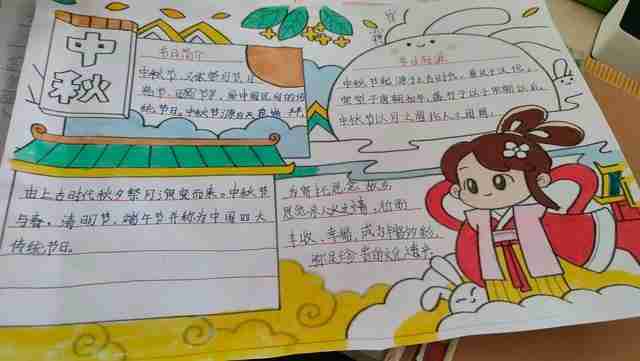 中秋
节日简介
中秋节，又称祭月节、
中秋节源自天象崇拜，
由上古时代秋夕祭月演变而来。中秋节
与春、清明节、端午节并称为中国四大
传统节日。
节日起源
中秋节起源于上古时代，普及于汉代，
定型于唐朝初年，盛行于宋朝以后。
中秋节以月之圆兆人之团圆，
为寄托思念故乡
思念亲人之情，祈盼
丰收、幸福，成为丰富多彩，
弥足珍贵的文化遗产。